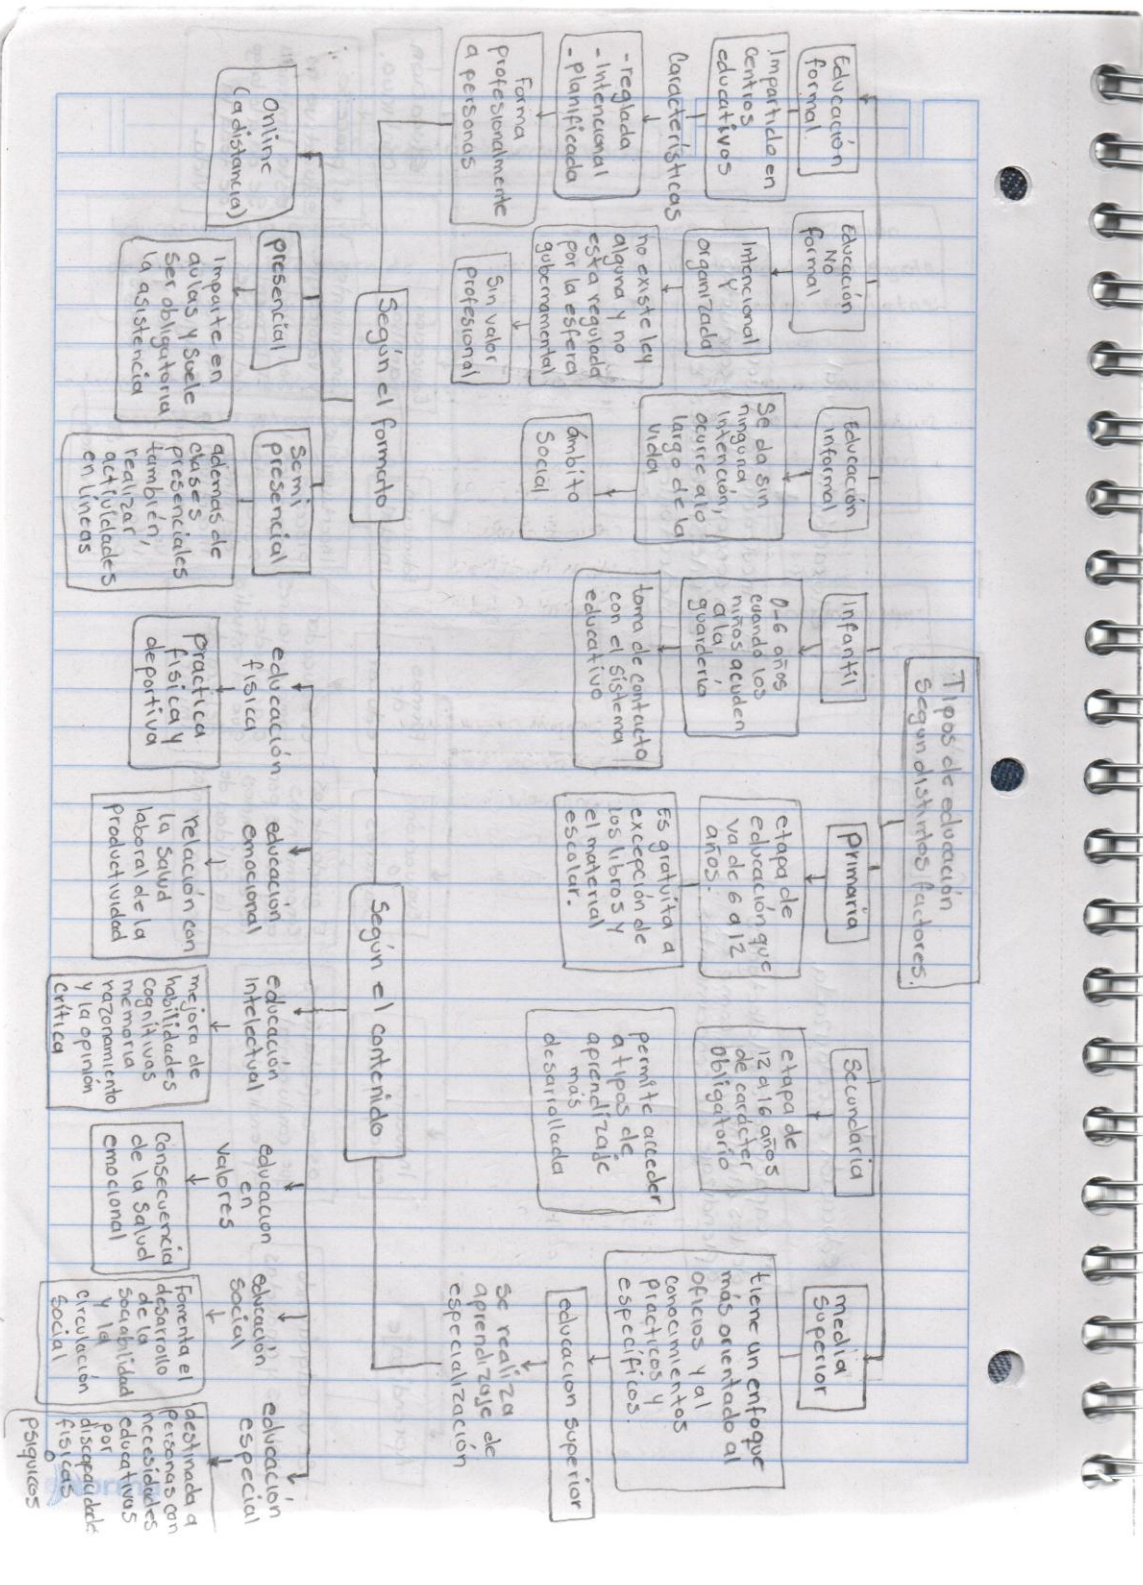 Tipos de educación
segun distintos factores.
Educación
formal.
Impartido en
centros
educativos
Características
-reglada
-Intencional
-planificada
forma
profesionalmente
a personas
Educación
No
formal
Intencional
y
organizada
no existe ley
alguna y no
esta regulada
por la esfera
gubernamental
Sin valor
profesional
Educación
informal
Se da sin
ninguna
intención,
ocurre a lo
largo de la
vida
ámbito
Social
Infantil
0-6 años
cuando los
niños acuden
a la
guardería
toma de contacto
con el sistema
educativo
primaria
etapa de
educación que
va de 6 a 12
años.
Es gratuita a
excepción de
los libros y
el material
escolar.
Secundaria
etapa de
12 a 16 años
de carácter
obligatorio
permite acceder
a tipos de
aprendizaje
más
desarrollada
media
superior
tiene un enfoque
más orientado al
oficios y al
conocimientos
prácticos y
específicos.
educacion superior
se realiza
aprendizaje de
especialización
Según el formato
Online
(a distancia)
presencial
Imparte en
aulas y suele
ser obligatoria
la asistencia
Semi
presencial
ademas de
clases
presenciales
también,
realizar
actividades
en líneas
Según el contenido
educación
física
practica
física y
deportiva
educación
emocional
relación con
la salud
laboral de la
productividad
educación
intelectual
mejora de
habilidades
cognitivas
memoria
razonamiento
y la opinión
crítica
educacion
en
valores
Consecuencia
de la salud
emocional
educación
social
Fomenta el
desarrollo
de la
sociabilidad
y la
circulación
social
educación
especial
destinada a
personas con
necesidades
educativas
por
discapacidades
físicas
o
psíquicos